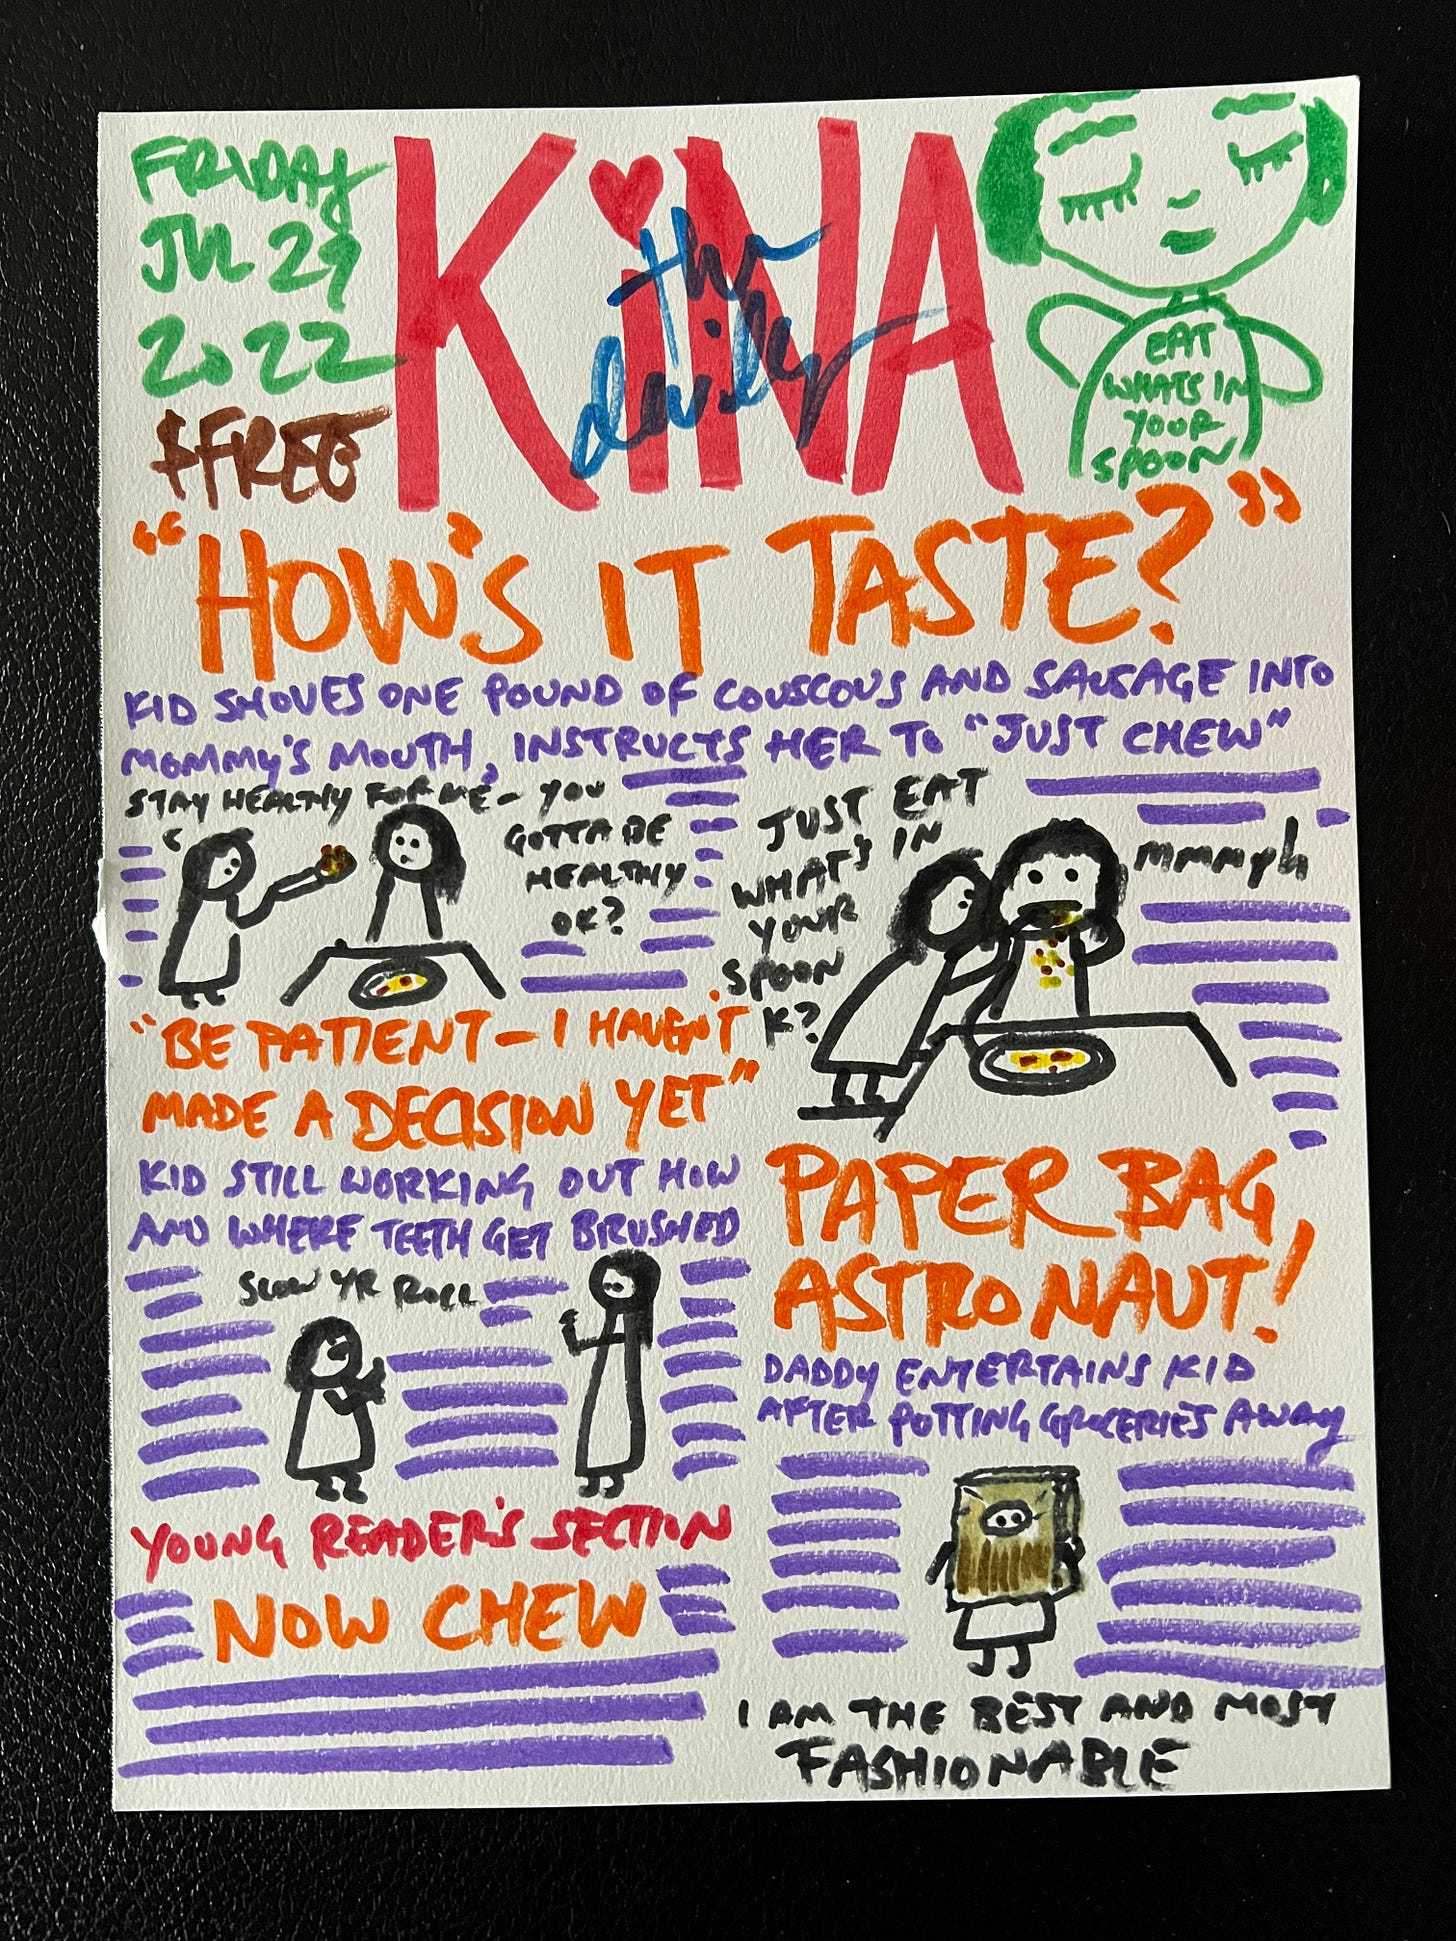 FRIDAY
JUL 29
2022
$FREE
KiNA
the
daily
EAT
WHATS IN
YOUR
SPOON
"HOW'S IT TASTE?"
KID SHOVES ONE POUND OF COUSCOUS AND SAUSAGE INTO
MOMMY'S MOUTH, INSTRUCTS HER TO "JUST CHEW"
STAY HEALTHY FOR ME - YOU
GOTTA BE
HEALTHY
OK?
JUST EAT
WHAT'S IN
YOUR
SPOON
K?
mmmph
"BE PATIENT - I HAVEN'T
MADE A DECISION YET"
KID STILL WORKING OUT HOW
AND WHERE TEETH GET BRUSHED
SLOW YR ROLL
PAPER BAG,
ASTRONAUT!
DADDY ENTERTAINS KID
AFTER PUTTING GROCERIES AWAY
I AM THE BEST AND MOST
FASHIONABLE
YOUNG READER'S SECTION
NOW CHEW